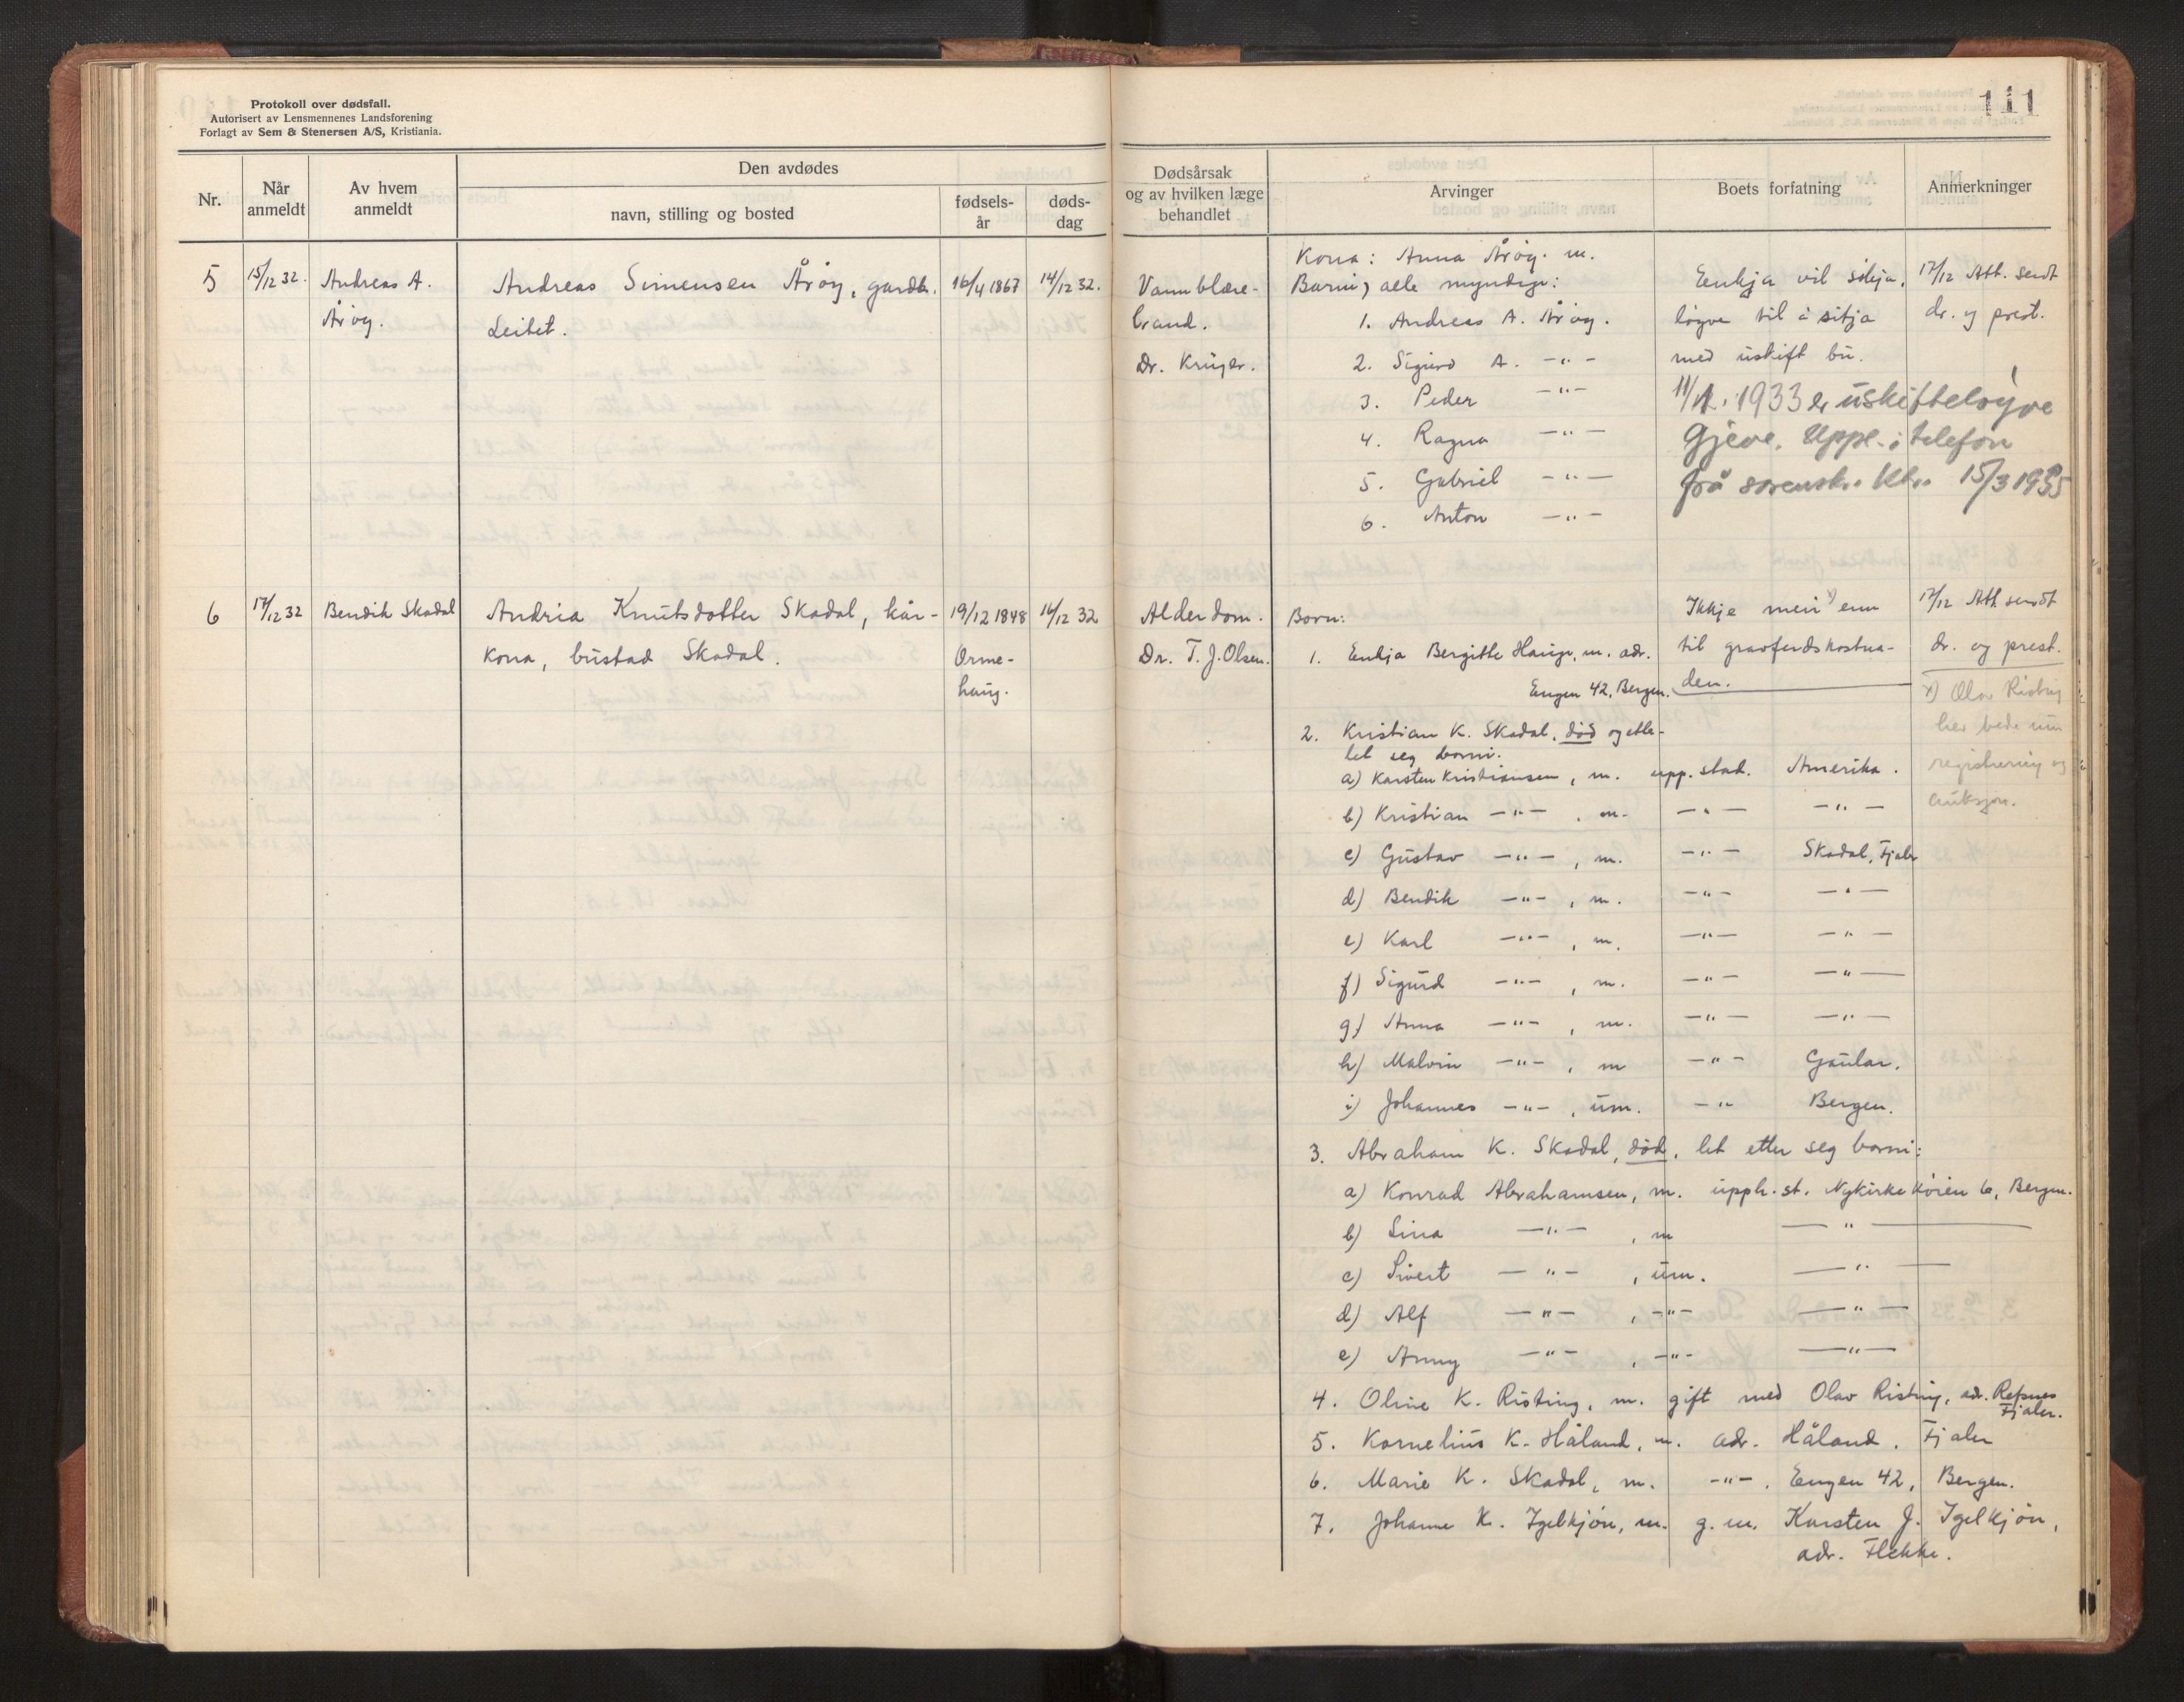 Protokoll over dødsfall.
Autorisert av Lensmennenes Landsforening
Forlagt av Sem & Stenersen A/S, Kristiania.
111
Nr.
Når anmeldt
Av hvem anmeldt
Den avdødes
navn, stilling og bosted
fødsels-år
døds-dag
Dødsårsak og av hvilken læge behandlet
Arvinger
Boets forfatning
Anmerkninger
5 15/12 32. Andreas A. Årøy.
Andreas Simensen Årøy, gardbr. Leitet.
16/4 1867 14/12 32.
Vannblære-
brand.
Dr. Krüger.
Kona: Anna Årøy. m.
Borni, alle myndige:
1. Andreas A. Årøy.
2. Sigurd A. -"-
3. Peder -"-
4. Ragna -"-
5. Gabriel -"-
6. Anton -"-
Enkja vil søkja
løyve til å sitja
med uskift bu.
11/1. 1933 er uskifteløyve
gjeve. Uppl. i telefon
frå sorensk. ktr. 15/3 1935
17/12 Att. sendt
dr. og prest.
6 17/12 32 Bendik Skadal
Andria Knutsdotter Skadal, kår-
kona, bustad Skadal.
19/12 1848 16/12 32
Orme-
haug.
Alderdom.
Dr. T. J. Olsen.
Born:
1. Enkja Bergitte Hauge, m. adr.
Engen 42, Bergen.
Ikkje meir x) enn
til gravferdskostna-
den.
17/12 Att. sendt
dr. og prest.
x) Olav Risting
her bede um
registrering og
auksjon.
2. Kristian K. Skadal, død og etle-
let seg borni:
a) Karsten Kristiansen, m. upp. stad. Amerika.
b) Kristian -"-, m. -"- -"-
c) Gustav -"-, m. -"- Skadal, Fjaler
d) Bendik -"-, m. -"- -"-
e) Karl -"-, m. -"- -"-
f) Sigurd -"-, m. -"- -"-
g) Anna -"-, m. -"- -"-
h) Malvin -"-, m -"- Gaular.
i) Johannes -"-, um. -"- Bergen.
3. Abraham K. Skadal, død, let etter seg borni:
a) Konrad Abrahamsen, m. upph. st. Nykirkekøien 6, Bergen.
b) Lina -"-, m -"-
c) Sivert -"-, um. -"-
d) Alf -"-, -"- -"-
e) Anny -"-, -"- -"-
4. Oline K. Risting, m. gift med Olav Risting, adr. Refsnes
Fjaler.
5. Kornelius K. Håland, m. adr. Håland, Fjaler
6. Marie K. Skadal, m. -"-, Engen 42, Bergen.
7. Johanne K. Igelkjøn, m. g. m. Karsten J. Igelkjøn,
adr. Flekke.